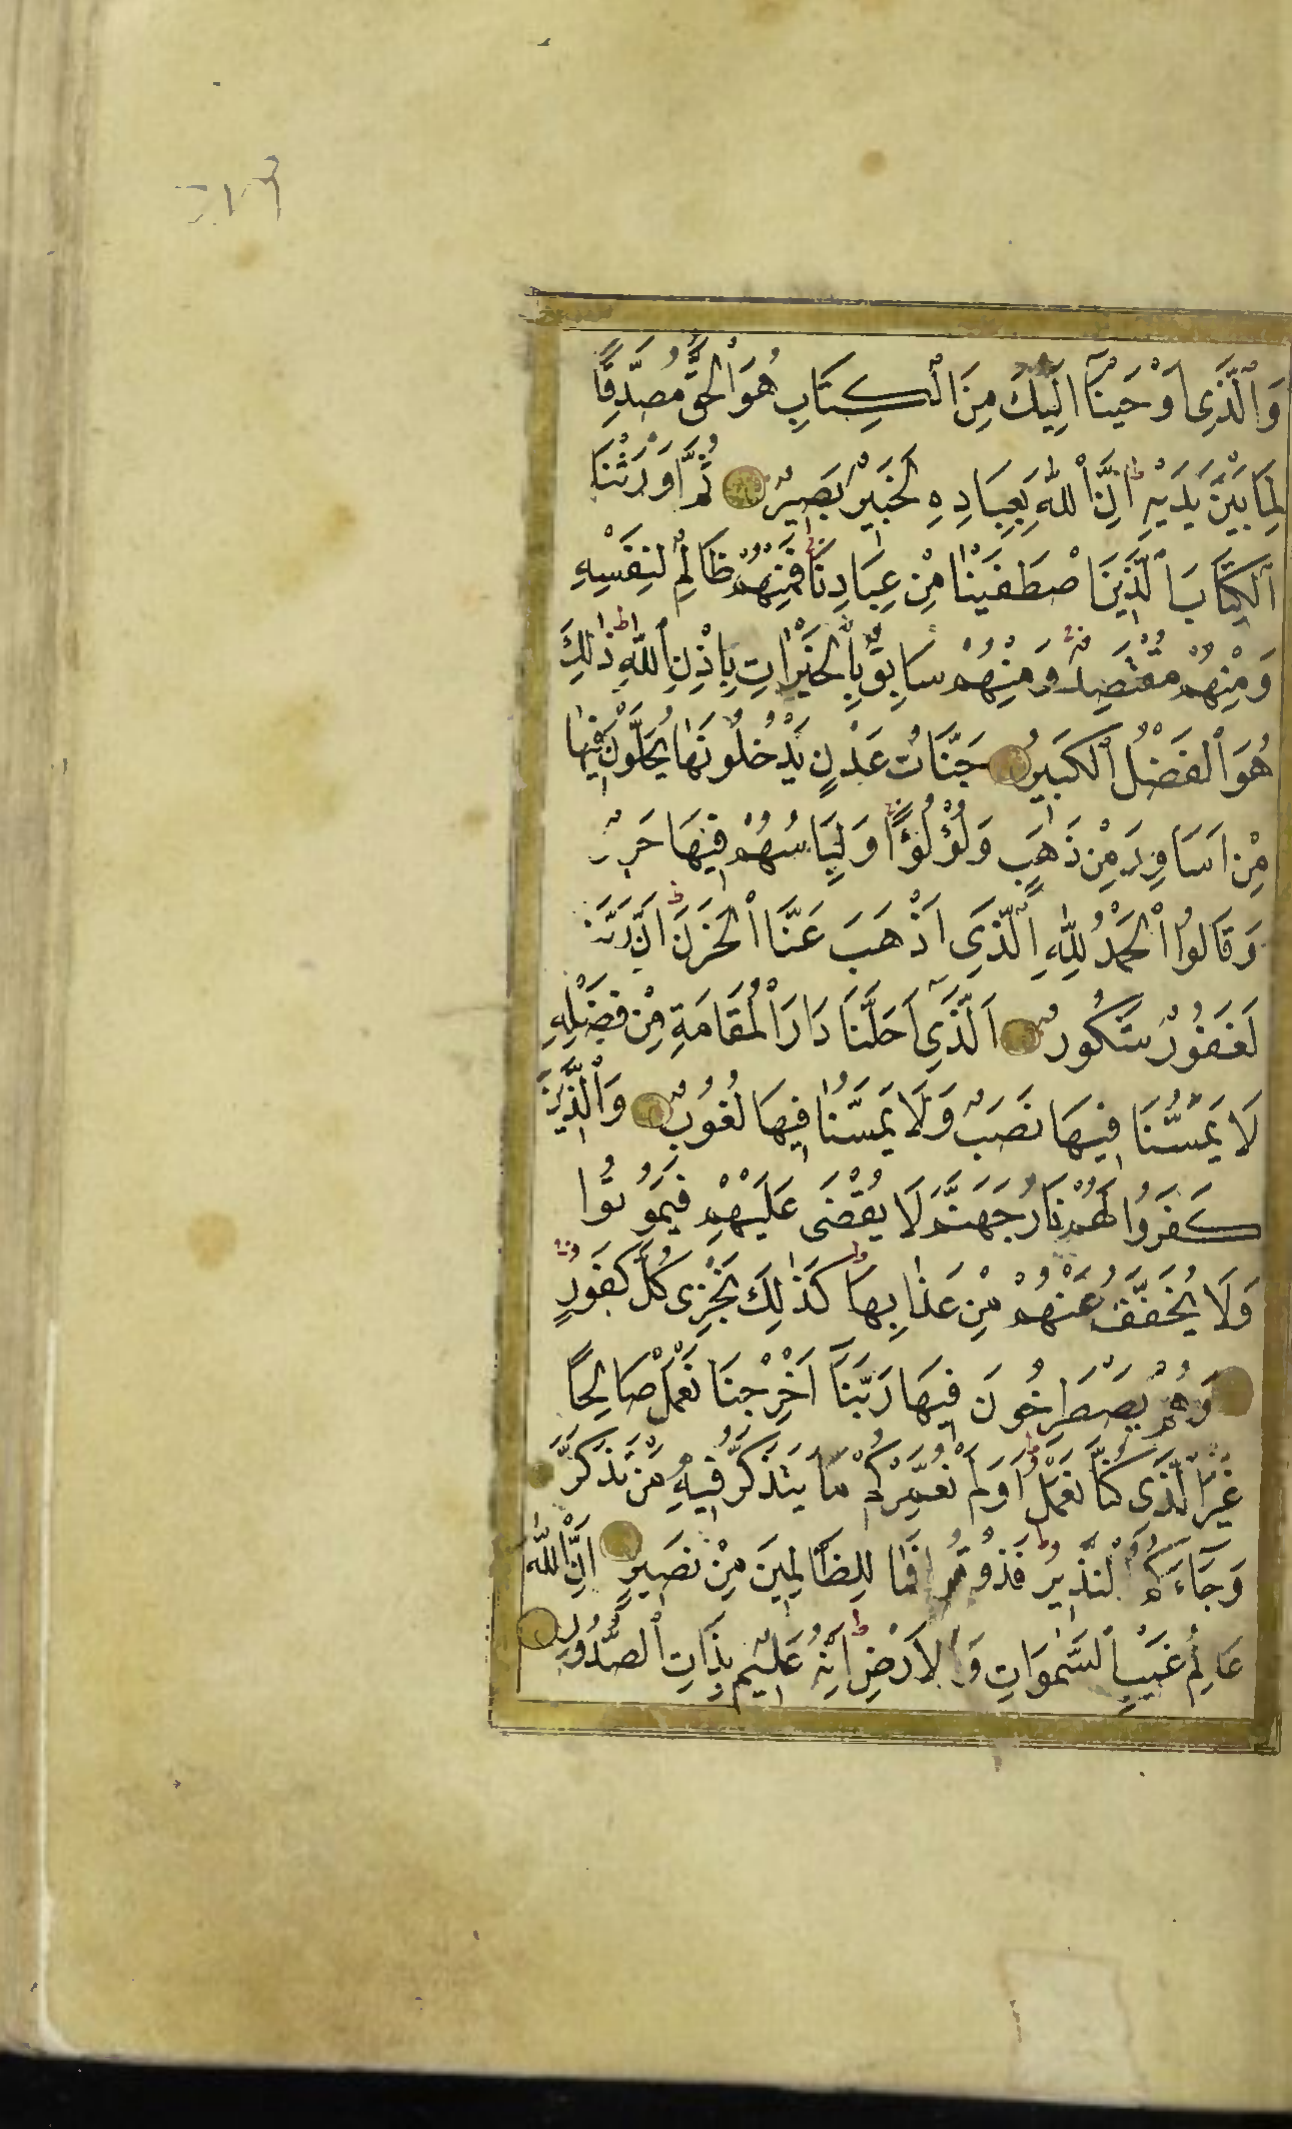 وَالَّذِى اَوْحَيْنَآ اِلَيْكَ مِنَ الْكِتَابِ هُوَ الْحَقُّ مُصَدِّقًا
لِمَا بَيْنَ يَدَيْهِ ط اِنَّ اللّٰهَ بِعِبَادِهِ لَخَبِيرٌ بَصِيرٌ ثُمَّ اَوْرَثْنَا
الْكِتَابَ الَّذِينَ اصْطَفَيْنَا مِنْ عِبَادِنَا فَمِنْهُمْ ظَالِمٌ لِنَفْسِهِ
وَمِنْهُمْ مُقْتَصِدٌ وَمِنْهُمْ سَابِقٌ بِالْخَيْرَاتِ بِاِذْنِ اللّٰهِ ط ذٰلِكَ
هُوَ الْفَضْلُ الْكَبِيرُ جَنَّاتُ عَدْنٍ يَدْخُلُونَهَا يُحَلَّوْنَ فِيهَا
مِنْ اَسَاوِرَ مِنْ ذَهَبٍ وَلُؤْلُؤًا وَلِبَاسُهُمْ فِيهَا حَرِيرٌ
وَقَالُوا الْحَمْدُ لِلّٰهِ الَّذِى اَذْهَبَ عَنَّا الْحَزَنَ ط اِنَّ رَبَّنَا
لَغَفُورٌ شَكُورٌ اَلَّذِىٓ اَحَلَّنَا دَارَ الْمُقَامَةِ مِنْ فَضْلِهِ
لَا يَمَسُّنَا فِيهَا نَصَبٌ وَلَا يَمَسُّنَا فِيهَا لُغُوبٌ وَالَّذِينَ
كَفَرُوا لَهُمْ نَارُ جَهَنَّمَ لَا يُقْضَى عَلَيْهِمْ فَيَمُوتُوا
وَلَا يُخَفَّفُ عَنْهُمْ مِنْ عَذَابِهَا ط كَذٰلِكَ نَجْزِى كُلَّ كَفُورٍ
وَهُمْ يَصْطَرِخُونَ فِيهَا رَبَّنَآ اَخْرِجْنَا نَعْمَلْ صَالِحًا
غَيْرَ الَّذِى كُنَّا نَعْمَلُ ط اَوَلَمْ نُعَمِّرْكُمْ مَا يَتَذَكَّرُ فِيهِ مَنْ تَذَكَّرَ
وَجَآءَكُمُ النَّذِيرُ ط فَذُوقُوا فَمَا لِلظَّالِمِينَ مِنْ نَصِيرٍ اِنَّ اللّٰهَ
عَالِمُ غَيْبِ السَّمٰوَاتِ وَالْاَرْضِ ط اِنَّهُ عَلِيمٌ بِذَاتِ الصُّدُورِ